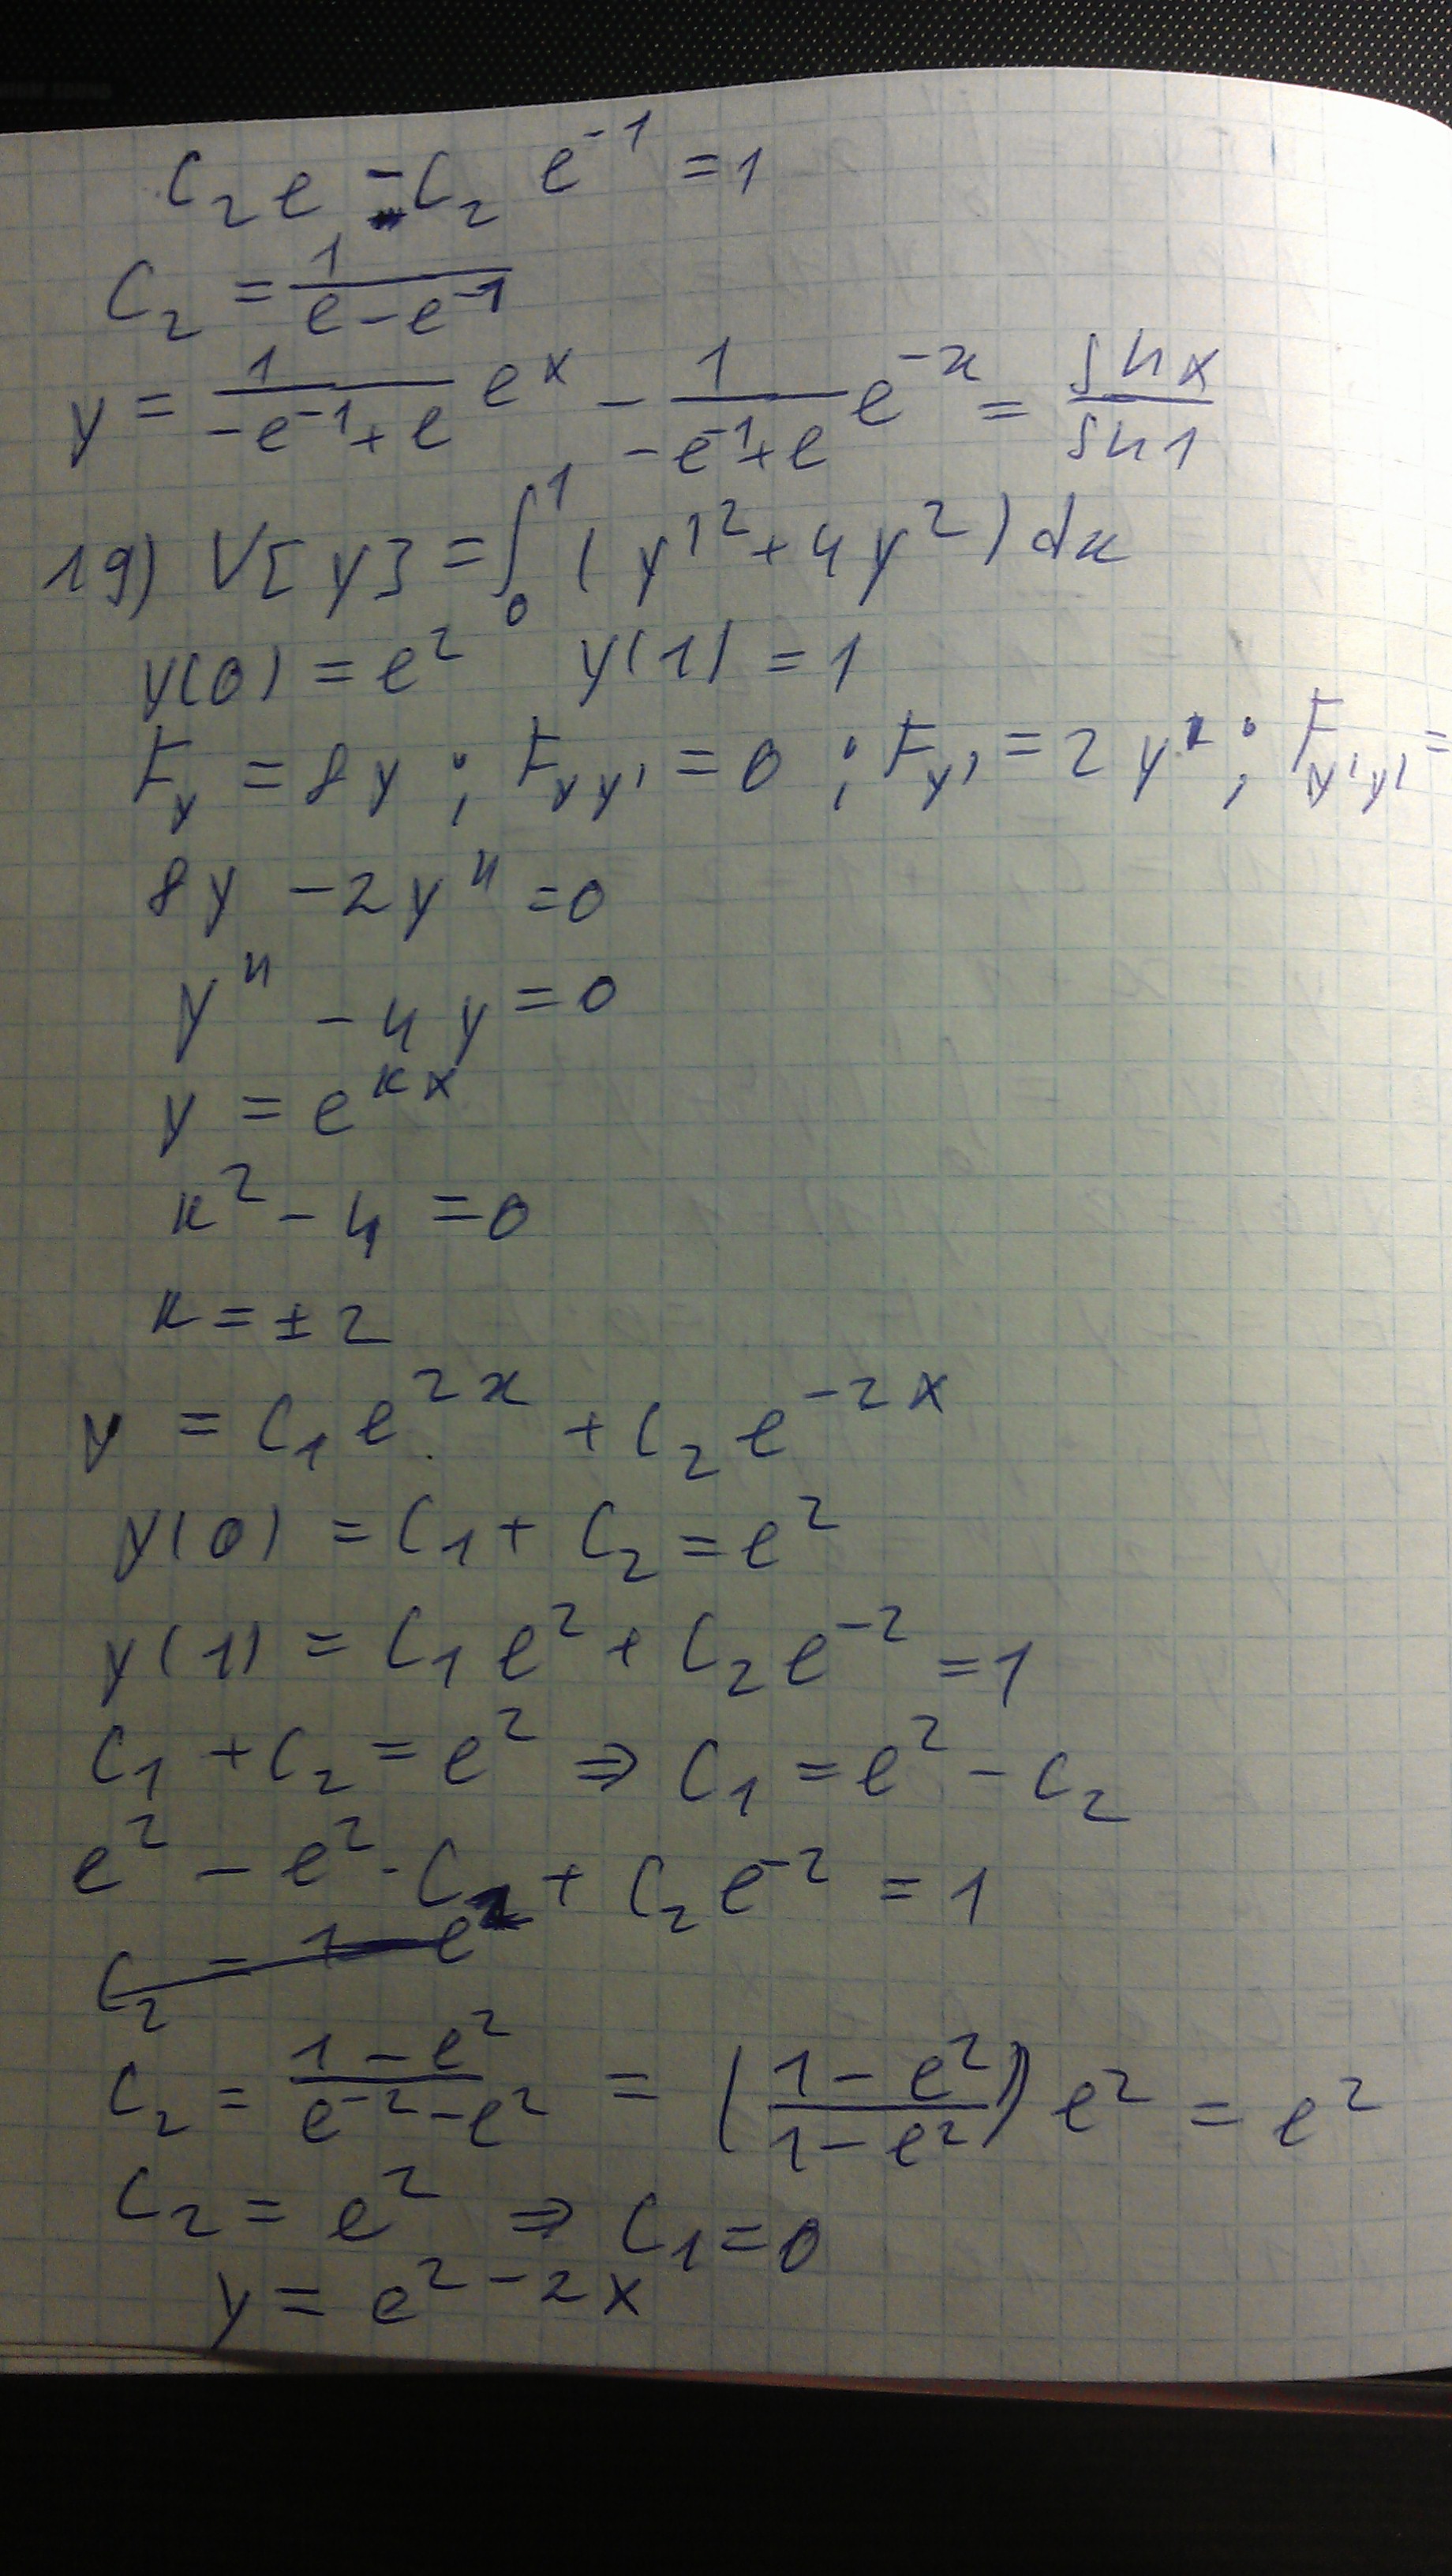 C₂e - C₂ e⁻¹ = 1
C₂ = 1/(e - e⁻¹)
y = 1/(-e⁻¹ + e) eˣ - 1/(-e⁻¹ + e) e⁻ˣ = sh x / sh 1
19) V[y] = ∫₀¹ (y'² + 4y²) dx
y(0) = e² y(1) = 1
F_y = 8y ; F_yy' = 0 ; F_y' = 2y' ; F_y'y' =
8y - 2y'' = 0
y'' - 4y = 0
y = e^(kx)
k² - 4 = 0
k = ± 2
y = C₁e^(2x) + C₂e^(-2x)
y(0) = C₁ + C₂ = e²
y(1) = C₁e² + C₂e⁻² = 1
C₁ + C₂ = e² ⇒ C₁ = e² - C₂
e² - e² · C₂ + C₂e⁻² = 1
C₂ = (1 - e²)/(e⁻² - e²) = ((1 - e²)/(1 - e²)) e² = e²
C₂ = e² ⇒ C₁ = 0
y = e^(2 - 2x)